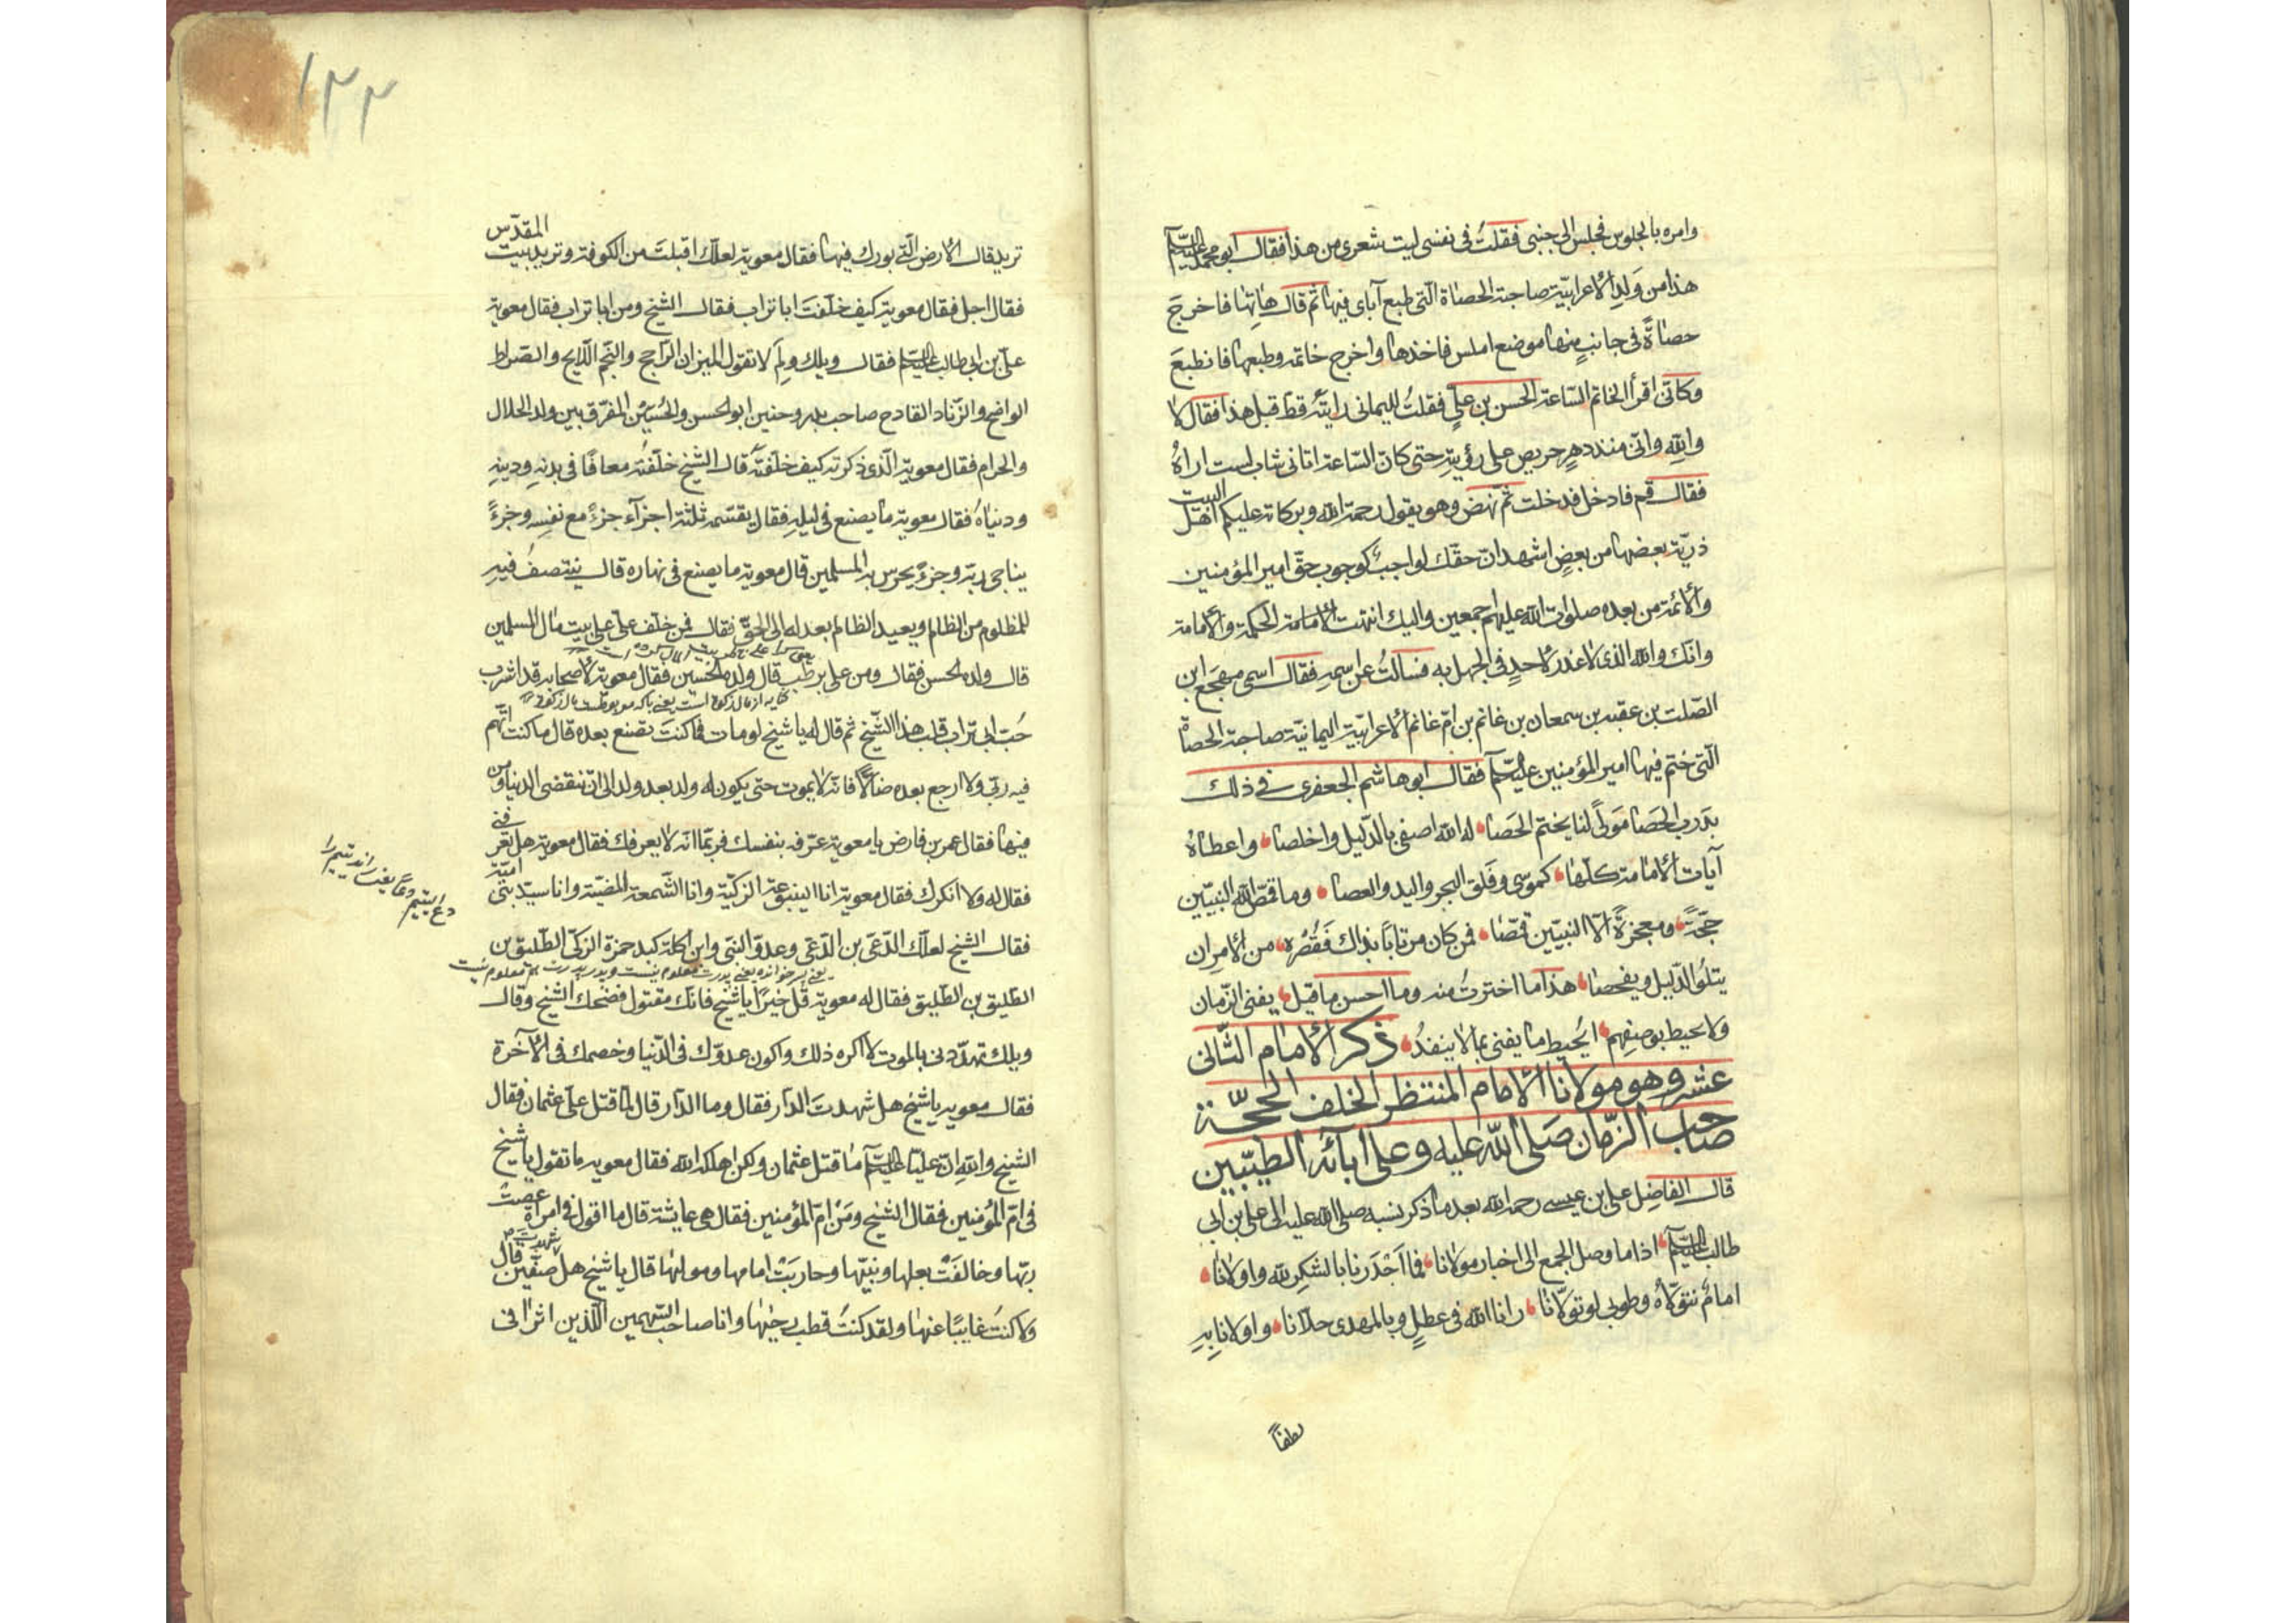 وامره بالجلوس فجلس الى جنبى فقلتُ فى نفسى ليت شعرى من هذا فقال ابو محمد عليه السلام
هذا من وَلَدِ الاعرابيّة صاحبة الحصاة الّتى طبع آباى فيها ثم قال هاتِها فاخرجَ
حصاةً فى جانبٍ منها موضع املس فاخذها واخرج خاتمه وطبعها فانطبعَ
وكانّى اقرأ الخاتم السّاعة الحسن بن علىٍّ فقلتُ لليمانى رايتَهُ قطّ قبل هذا فقال لا
واللهِ وانّى منذ دهرٍ حريص على رؤيتِه حتى كانّ السّاعة اتانى شاب لست اراهُ
فقال قم فادخل فدخلت ثمّ نهض وهو يقول رحمة الله وبركاته عليكم اهل البيت
ذرّيّة بعضها من بعضٍ اشهد انّ حقّك لواجبٌ كوجوب حقّ امير المؤمنين
والأئمّة من بعده صلوات الله عليهم اجمعين واليك انتهت الامامة الحكمة والامامة
وانّك والله الذى لا عذر لاحدٍ فى الجهل به فسالتُ عن اسمه فقال اسمى مهجَع ابن
الصّلت بن عقبه بن سمعان بن غانم بن امّ غانم الاعرابيّة اليمانيّة صاحبة الحصاة
الّتى ختم فيها امير المؤمنين عليه السلام فقال ابو هاشم الجعفرى فى ذلك
بدَرب الحَصا مَولىً لنا يختم الحَصا له الله اصفى بالدّليل واخلصا واعطاهُ
آيات الامامة كلّها كموسى وفَلق البحر واليد والعصا وما قمّص الله النبيّين
حجّةً ومعجزةً الّا النبيّين قمّصا فمن كان مرتاباً بذاك فَقُصْرُه من الامرِ ان
يتلُو الدّليل ويفحصا هذا ما اخترتُ منه وما احسن ما قيل يفنى الزّمان
ولا يحيط بوصفِهم ايُحيط ما يفنى بما لا ينفدُ ذكر الامام الثّانى
عشر وهو مولانا الامام المنتظر الخلف الحجّة
صاحب الزّمان صَلى الله عليه وعلى آبائه الطيّبين
قال الفاضِل على بن عيسى رحمه الله بعد ما ذكر نسبه صلى الله عليه الى على بن ابى
طالب عليه السلام اذا ما وصل الجمع الى اخبار مولانا فما اَجْدَرنا بالشكرِ لله واولانا
امامٌ نتولّاهُ وطوبى لو تولّانا رانا الله فى عطلٍ وبالمهدى حلّانا واولانا بِه
لطفاً
١٣٣
تريد قال الارض الّتى بورك فيها فقال معوية لعلّك اقبلتَ من الكوفة وتريد بيت المقدّس
فقال اجل فقال معوية كيف خلّفتَ ابا تراب فقال الشيخ ومن ابا تراب فقال معوية
علىّ بن ابى طالب عليه السلام فقال ويلك ولِمَ لا تقول الميزان الرّاجح والنّجم اللّايح والصّراط
الواضح والزّناد القادح صاحب بدر وحنين ابو الحسن والحُسَيْن المفرّق بين ولد الحلال
والحرام فقال معوية الّذى ذكرته كيف خلّفتَهُ قال الشيخ خلّفتُه معافًا فى بدنِه ودينِه
ودنياهُ فقال معوية ما يصنع فى ليلهِ فقال يقسّمه ثلثة اجزآء جزءً مع نفسِه وجزءً
يناجى ربّه وجزءً يحرس به المسلمين قال معوية ما يصنع فى نهاره قال ينتصفُ فيه
للمظلوم من الظّالم ويعيد الظالم بعدله الى الحقّ فقال فمن خلّف علىّ على بيت مال المسلمين
قال ولده الحسن فقال ومن على بر طب قال ولده الحسين فقال معوية لاصحابه قد اشرب
كنايه از مال زكوة است يعنى
حُبّ ابى تراب قلب هذا الشّيخ ثم قال له يا شيخ لو مات فما كنتَ تصنع بعده قال ما كنت اتّهم
فيه ربّى ولا ارجع بعده ضالًّا فانّه لا يموت حتى يكون له ولد بعد ولد الى ان تنقضى الدنيا ومن
فيها فقال عمر بن فارض يا معوية عرّفه بنفسك فربّما انّه لا يعرفك فقال معوية هل تعرفنى
فقال له ولا انكرك فقال معوية انا الينبوعة الزكيّة وانا الشّمعة المضيّة وانا سيّد بنى اميّة
فقال الشيخ لعلّك الدّعىّ بن الدّعى وعدوّ النبّى وابن اكلة كبد حمزة الزكّى الطّليق بن
يعنى پسر خوانده يعنى پدرت معلوم نيست و پدر پدرت هم معلوم نيست
الطّليق بن الطّليق فقال له معوية قُل خيرًا يا شيخ فانّك مقتول فضحك الشيخ وقال
ويلك تهدّدنى بالموت لا اكره ذلك واكون عدوّك فى الدّنيا وخصمك فى الآخرة
فقال معويه يا شيخ هل شهدتَ الدّار فقال وما الدّار قال لمّا قتل علىّ عثمان فقال
الشيخ والله انّ عليًّا عليه السلام ما قتل عثمان ولكن اهلكه الله فقال معويه ما تقول يا شيخ
فى امّ المؤمنين فقال الشيخ ومَنْ امّ المؤمنين فقال هى عايشة قال ما اقول فى امراةٍ عصت
ربّها وخالفَتْ بعلها ونبيّها وحاربَتْ امامها ومولٰها قال يا شيخ هل شهدت صفّين قال
ولا كنتُ غايبًا عنها ولقد كنتُ قطب رحيٰها وانا صاحب السّهمين اللّذين اثرا فى